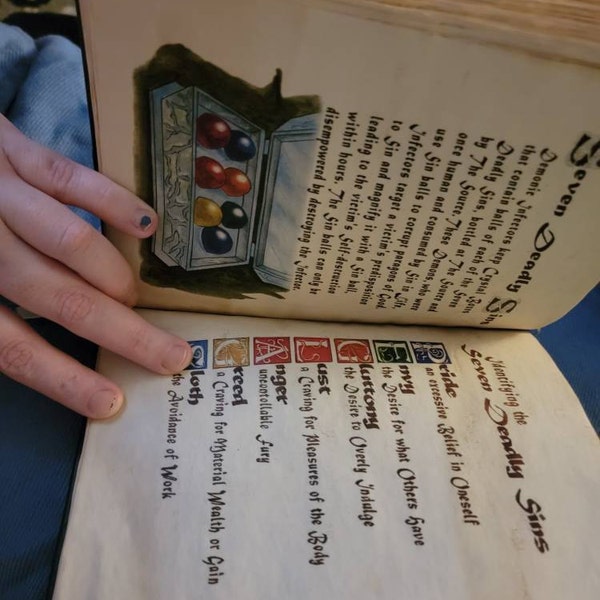 Seven Deadly Sins
Demonic Infectors keep Crystal
that contain balls of each of the Seven
Deadly Sins, bottled at The Source
by The Source. These Demons who were
once human and consumed by
use Sin balls to corrupt paragons of Good.
Infectors target a victim's predisposition
to Sin and magnify it with a Sin ball,
leading to the victim's Self-destruction
within hours. The Sin balls can only be
disempowered by destroying the Infector.
Identifying the
Seven Deadly Sins
Pride
an excessive Belief in Oneself
Envy
the Desire for what Others have
Gluttony
the Desire to Overly Indulge
Lust
a Craving for Pleasures of the Body
Anger
uncontrollable Fury
Greed
a Craving for Material Wealth or Gain
Sloth
the Avoidance of Work